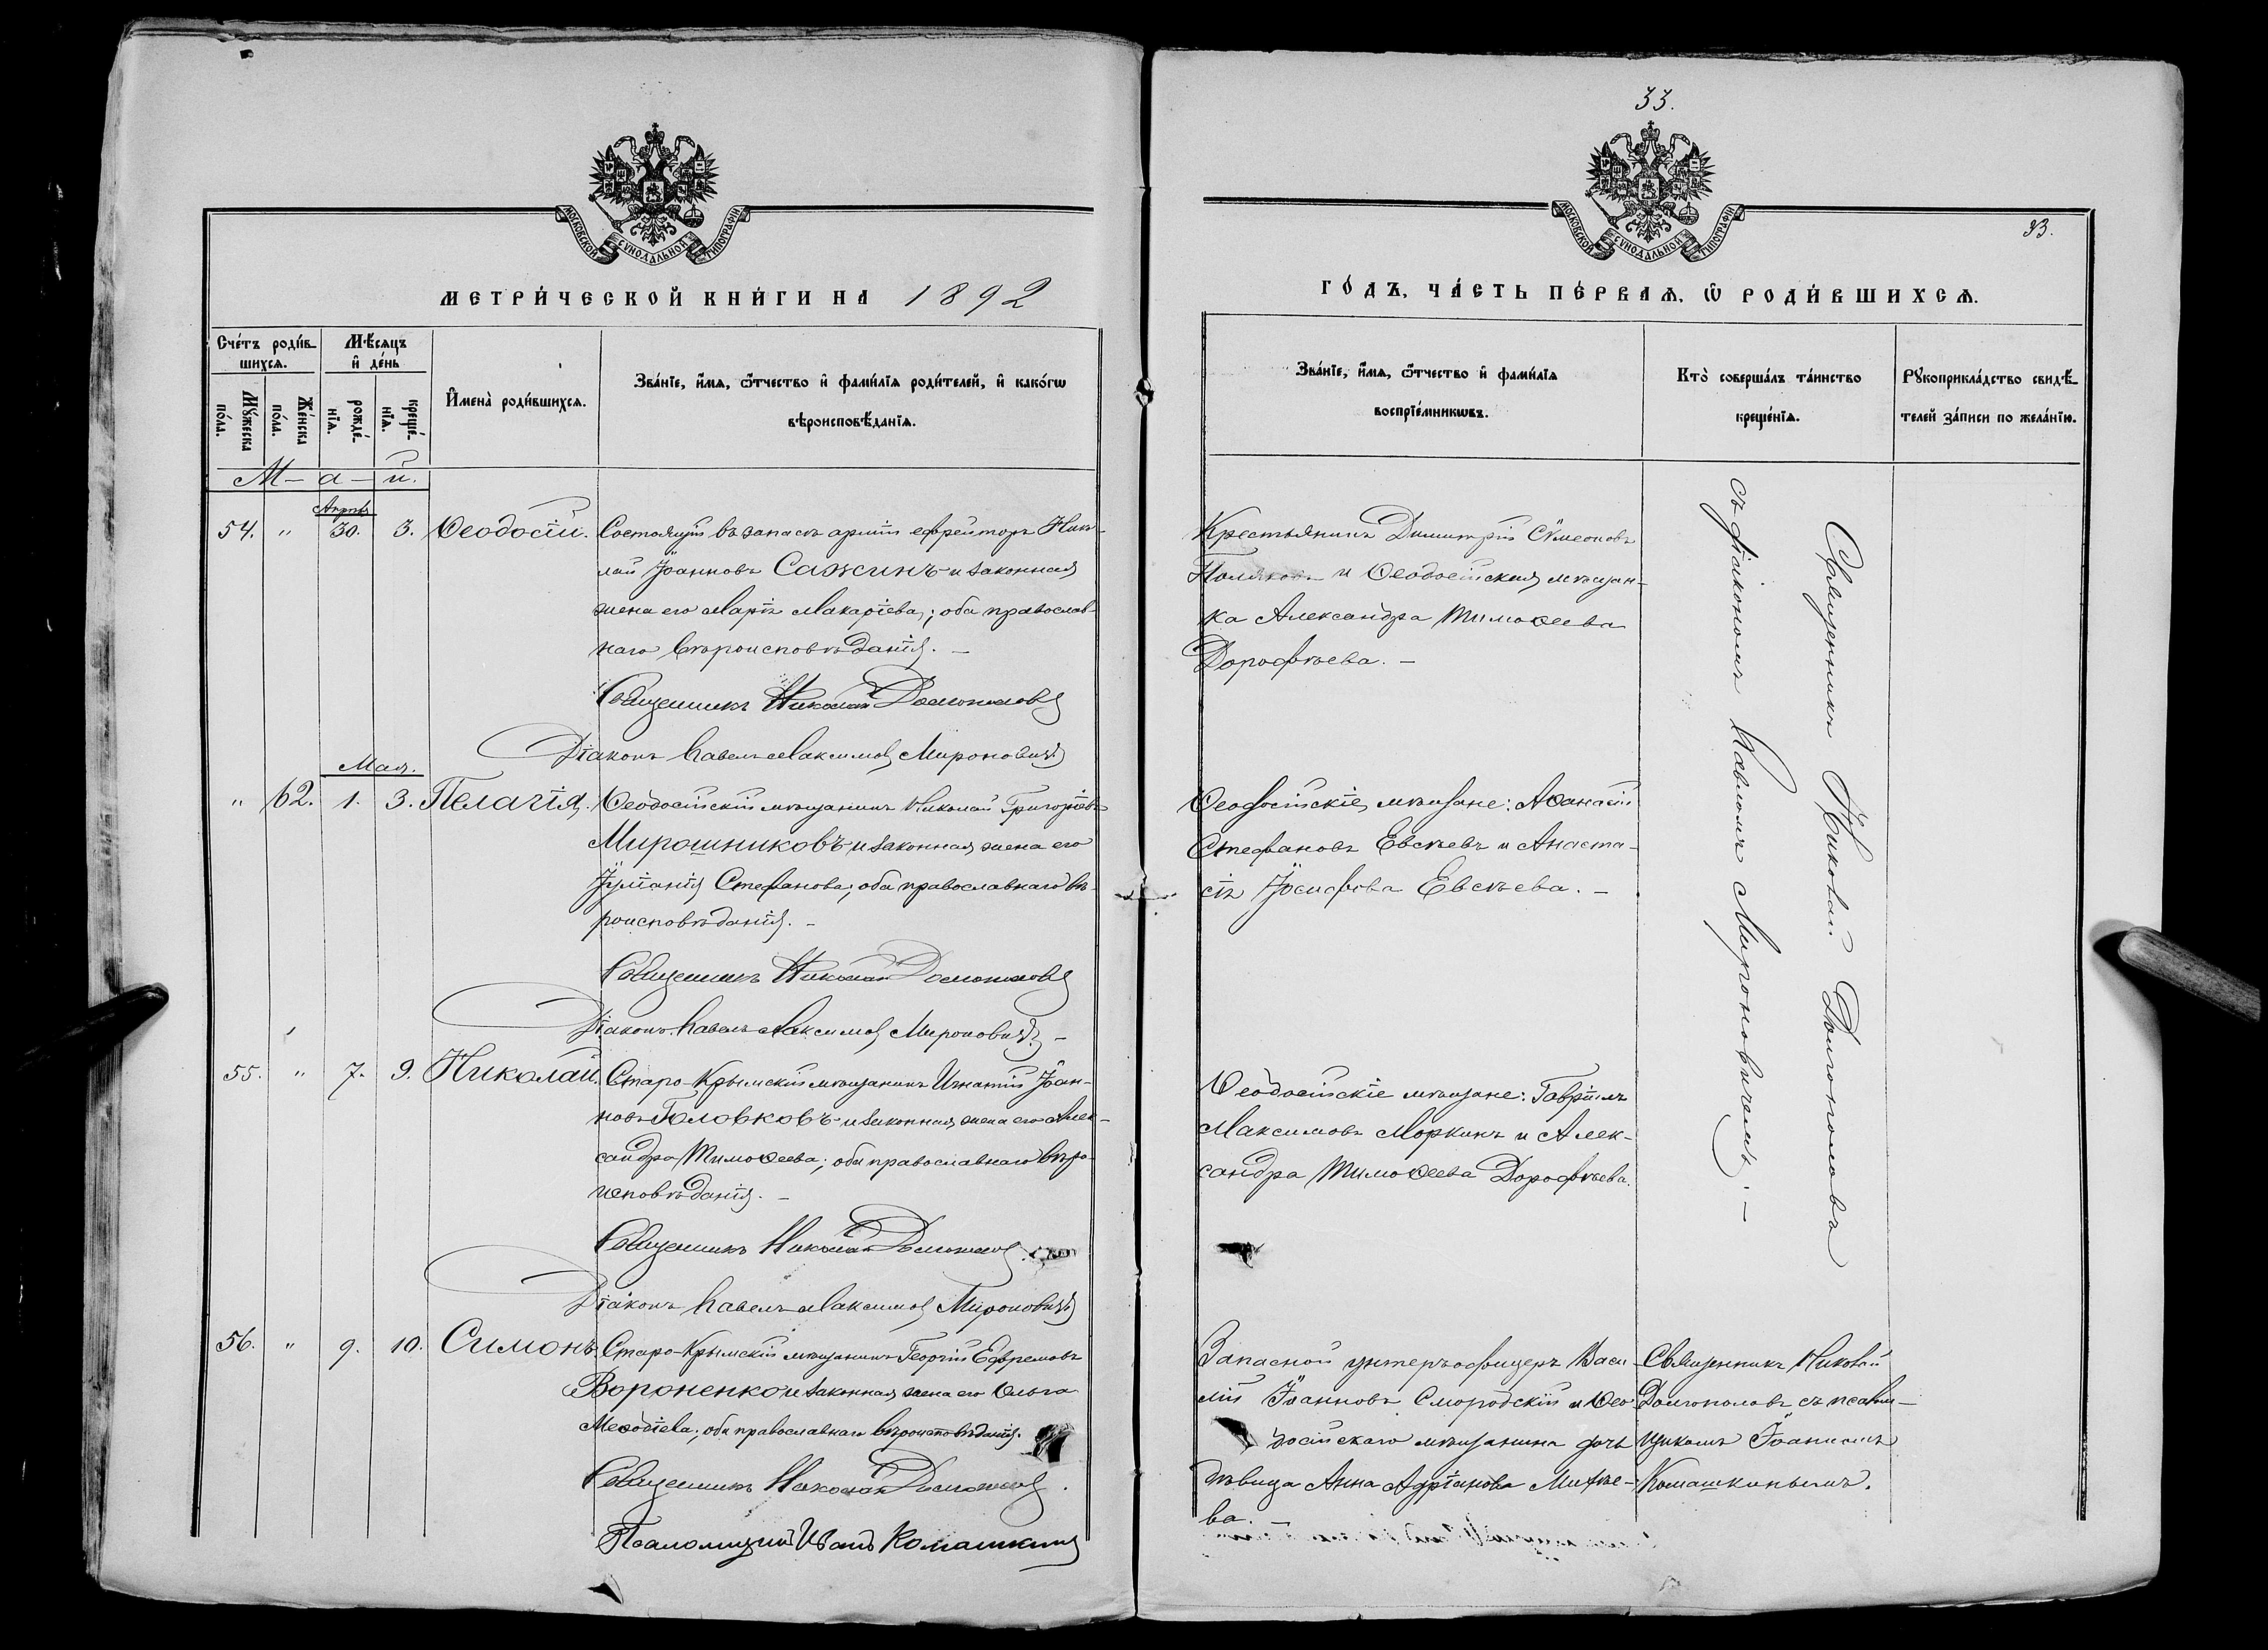 МОСКОВСКОЙ СѴНОДАЛЬНОЙ ТИПОГРАФІИ
МЕТРИ́ЧЕСКОЙ КНИ́ГИ НА 1892
Сче́тъ роди́в-
шихсѧ.
Мѣ́сѧцъ
и҆ де́нь
Мꙋ́жеска
по́ла.
Же́нска
по́ла.
рожде́-
нїѧ.
креще́-
нїѧ.
И҆мена̀ роди́вшихсѧ.
Зва́нїе, и҆́мѧ, ѻ҆́тчество и҆ фами́лїѧ роди́телей, и҆ како́гѡ
вѣроисповѣ́данїѧ.
М — а — й.
Апрѣл.
54. " 30. 3. Ѳеодосій. Состоящій въ запасѣ арміи ефрейторъ Нико-
лай Іоанновъ Сажинъ и законная
жена его Марія Макаріева; оба православ-
наго вѣроисповѣданія. —
Священникъ Николай Долгополовъ
Діаконъ Павелъ Максимов Мироновичъ
Мая.
" 62. 1. 3. Пелагія. Ѳеодосійскій мѣщанинъ Николай Григоріевъ
Мирошниковъ и законная жена его
Іуліанія Стефанова; оба православнаго вѣ-
роисповѣданія. —
Священникъ Николай Долгополовъ
Діаконъ Павелъ Максимов Мироновичъ —
55. " 7. 9. Николай. Старо-Крымскій мѣщанинъ Игнатій Іоан-
новъ Головковъ и законная жена его Алек-
сандра Тимоѳеева; оба православнаго вѣро-
исповѣданія. —
Священникъ Николай Долгополовъ
Діаконъ Павелъ Максимов Мироновичъ
56. " 9. 10. Симонъ. Старо-Крымскій мѣщанинъ Георгій Ефремовъ
Вороненко и законная жена его Ольга
Меѳодіева; оба православнаго вѣроисповѣданія.
Священникъ Николай Долгополовъ.
Псаломщикъ Иванъ Комашкинъ
33.
МОСКОВСКОЙ СѴНОДАЛЬНОЙ ТИПОГРАФІИ
33.
ГО́ДЪ, ЧА́СТЬ ПЕ́РВАѦ, Ѡ҆ РОДИ́ВШИХСѦ.
Зва́нїе, и҆́мѧ, ѻ҆́тчество и҆ фами́лїѧ
воспрїе́мникѡвъ.
Кто̀ соверша́лъ та́инство
креще́нїѧ.
Рꙋкоприкла́дство свидѣ́-
телей за́писи по жела́нїю.
Крестьянинъ Димитрій Сѵмеоновъ
Поляковъ и Ѳеодосійская мѣщан-
ка Александра Тимоѳеева
Дорофѣева. —
Ѳеодосійскіе мѣщане: Аѳанасій
Стефановъ Евсѣевъ и Анаста-
сія Іосифова Евсѣева. —
Ѳеодосійскіе мѣщане: Гавріилъ
Максимовъ Моркинъ и Алек-
сандра Тимоѳеева Дорофѣева.
Священникъ Николай Долгополовъ
съ діакономъ Павломъ Мироновичемъ. —
Запасной унтеръ-офицеръ Васи-
лій Іоанновъ Смородскій и Ѳео-
досійскаго мѣщанина дочь
дѣвица Анна Адріанова Михѣе-
ва. —
Священникъ Николай
Долгополовъ съ псалом-
щикомъ Іоанномъ
Комашкинымъ.